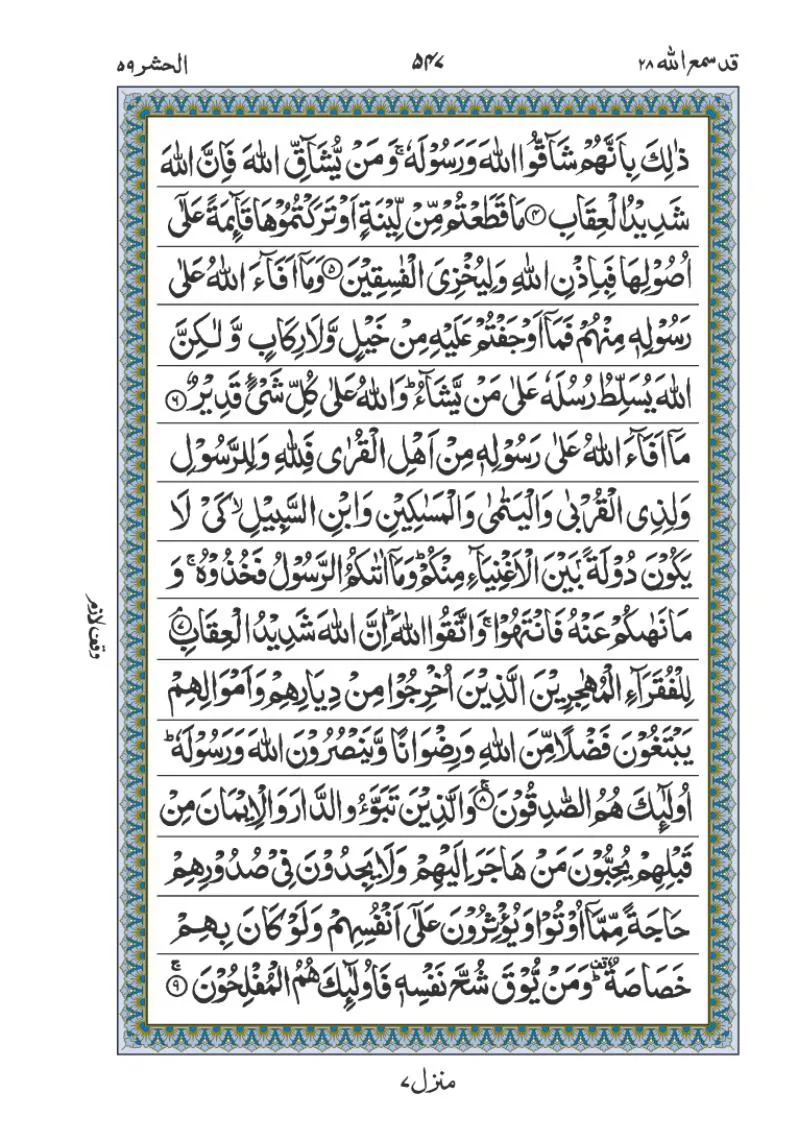 قد سمع الله ٢٨
٥٤٧
الحشر ٥٩
ذٰلِكَ بِاَنَّهُمْ شَآقُّوا اللّٰهَ وَرَسُوْلَهٗ ۚ وَمَنْ يُّشَآقِّ اللّٰهَ فَاِنَّ اللّٰهَ
شَدِيْدُ الْعِقَابِ ﴿۴﴾ مَا قَطَعْتُمْ مِّنْ لِّيْنَةٍ اَوْ تَرَكْتُمُوْهَا قَآئِمَةً عَلٰٓى
اُصُوْلِهَا فَبِاِذْنِ اللّٰهِ وَلِيُخْزِىَ الْفٰسِقِيْنَ ﴿۵﴾ وَمَآ اَفَآءَ اللّٰهُ عَلٰى
رَسُوْلِهٖ مِنْهُمْ فَمَآ اَوْجَفْتُمْ عَلَيْهِ مِنْ خَيْلٍ وَّلَا رِكَابٍ وَّ لٰكِنَّ
اللّٰهَ يُسَلِّطُ رُسُلَهٗ عَلٰى مَنْ يَّشَآءُ ؕ وَاللّٰهُ عَلٰى كُلِّ شَىْءٍ قَدِيْرٌ ﴿۶﴾
مَآ اَفَآءَ اللّٰهُ عَلٰى رَسُوْلِهٖ مِنْ اَهْلِ الْقُرٰى فَلِلّٰهِ وَلِلرَّسُوْلِ
وَلِذِى الْقُرْبٰى وَالْيَتٰمٰى وَالْمَسٰكِيْنِ وَابْنِ السَّبِيْلِ ۙ كَىْ لَا
يَكُوْنَ دُوْلَةًۢ بَيْنَ الْاَغْنِيَآءِ مِنْكُمْ ؕ وَمَآ اٰتٰىكُمُ الرَّسُوْلُ فَخُذُوْهُ ۚ وَ
مَا نَهٰىكُمْ عَنْهُ فَانْتَهُوْا ۚ وَاتَّقُوا اللّٰهَ ؕ اِنَّ اللّٰهَ شَدِيْدُ الْعِقَابِ ۘ ﴿۷﴾
وقف لازم
لِلْفُقَرَآءِ الْمُهٰجِرِيْنَ الَّذِيْنَ اُخْرِجُوْا مِنْ دِيَارِهِمْ وَاَمْوَالِهِمْ
يَبْتَغُوْنَ فَضْلًا مِّنَ اللّٰهِ وَرِضْوَانًا وَّيَنْصُرُوْنَ اللّٰهَ وَرَسُوْلَهٗ ؕ
اُولٰٓئِكَ هُمُ الصّٰدِقُوْنَ ۚ ﴿۸﴾ وَالَّذِيْنَ تَبَوَّءُو الدَّارَ وَالْاِيْمَانَ مِنْ
قَبْلِهِمْ يُحِبُّوْنَ مَنْ هَاجَرَ اِلَيْهِمْ وَلَا يَجِدُوْنَ فِىْ صُدُوْرِهِمْ
حَاجَةً مِّمَّآ اُوْتُوْا وَيُؤْثِرُوْنَ عَلٰٓى اَنْفُسِهِمْ وَلَوْ كَانَ بِهِمْ
خَصَاصَةٌ ؕ قف وَمَنْ يُّوْقَ شُحَّ نَفْسِهٖ فَاُولٰٓئِكَ هُمُ الْمُفْلِحُوْنَ ۚ ﴿۹﴾
منزل ٧